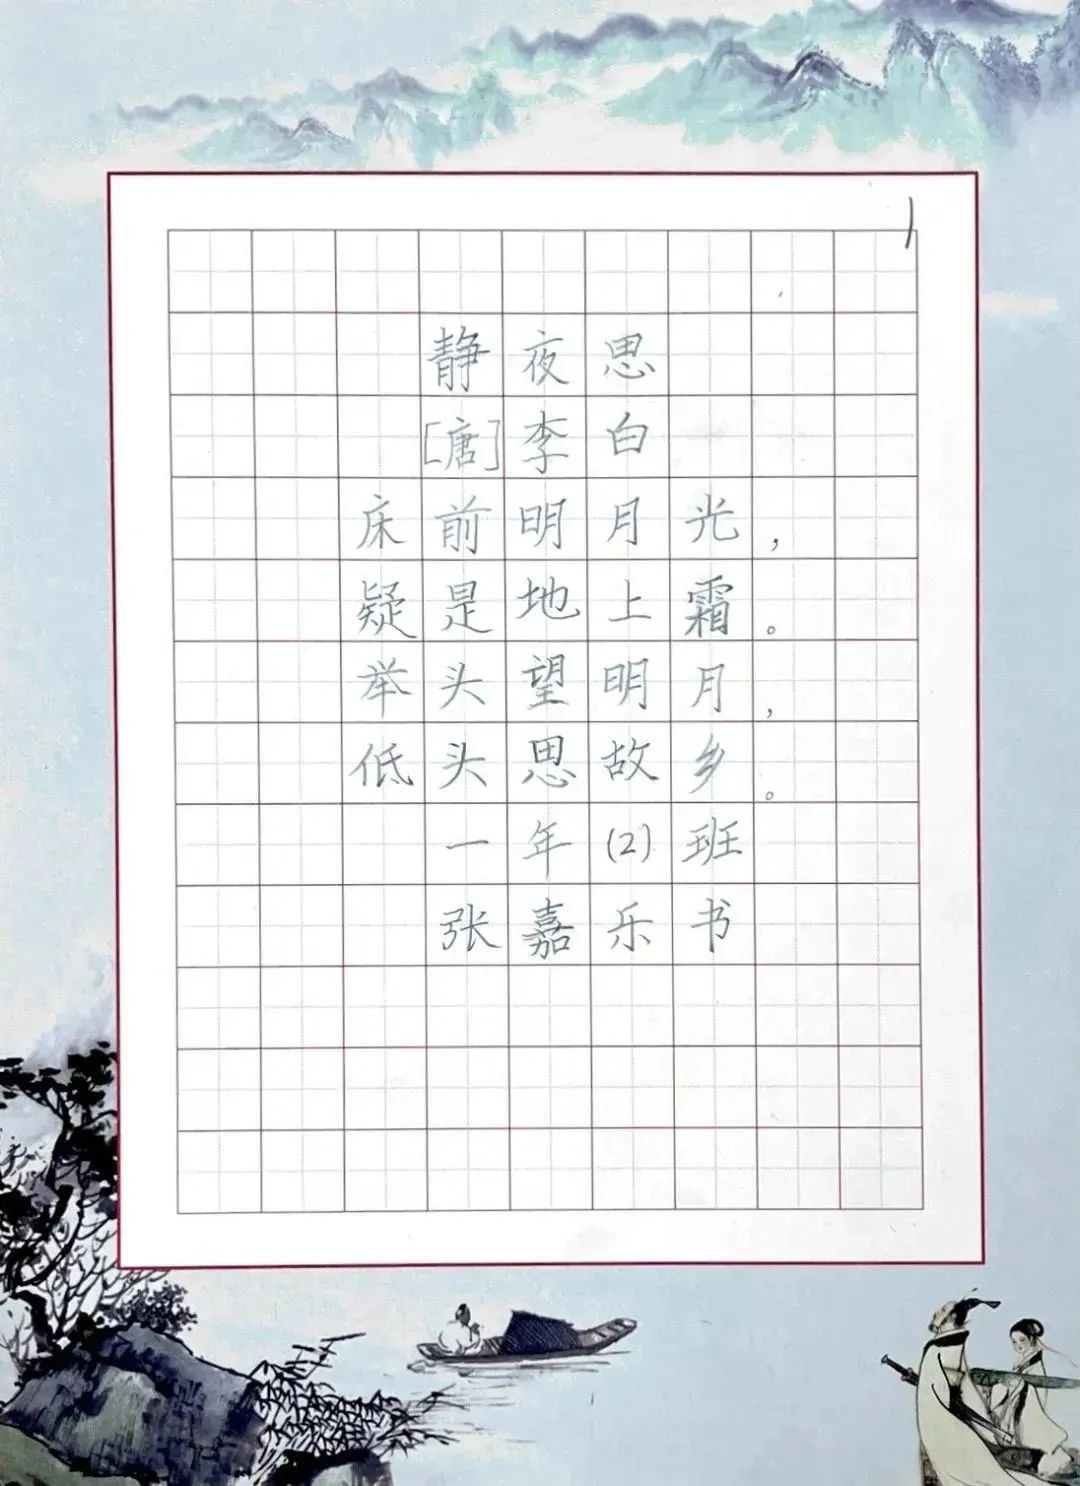 静夜思
[唐]李白
床前明月光，
疑是地上霜。
举头望明月，
低头思故乡。
一年(2)班
张嘉乐书